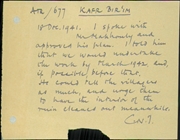 ATQ/677 KAFR BIR'IM
18 Dec. 1941. I spoke with
Mr Makhouly and
approved his plan. I told him
that we would undertake
the work by March 1942, and,
if possible, before that.
He could tell the villagers
as much, and urge them
to have the interior of the
main cleaned out meanwhile.